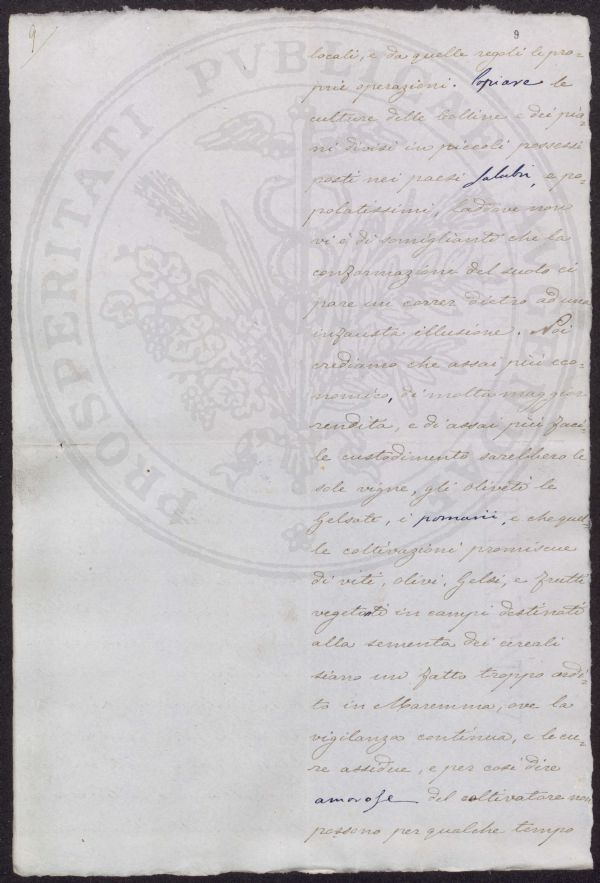 9
9
PROSPERITATI PVBLICAE AVGENDAE
locali, e da quelle regoli le pro-
prie operazioni. Copiare le
culture delle Colline e dei pia-
ni divisi in piccoli possessi
posti nei paesi salubri, e po-
polatissimi, laddove non
vi è di somigliante che la
conformazione del suolo ci
pare un correr dietro ad una
infausta illusione. Noi
crediamo che assai più eco-
nomico, di molta maggior
rendita, e di assai più faci-
le custodimento sarebbero le
sole vigne, gli oliveti le
Gelsete, i pomarii, e che quel-
le coltivazioni promiscue
di viti, olivi, Gelsi, e frutti
vegetanti in campi destinati
alla sementa dei cereali
siano un fatto troppo ardi-
to in Maremma, ove la
vigilanza continua, e le cu-
re assidue, e per così dire
amorose del coltivatore non
possono per qualche tempo